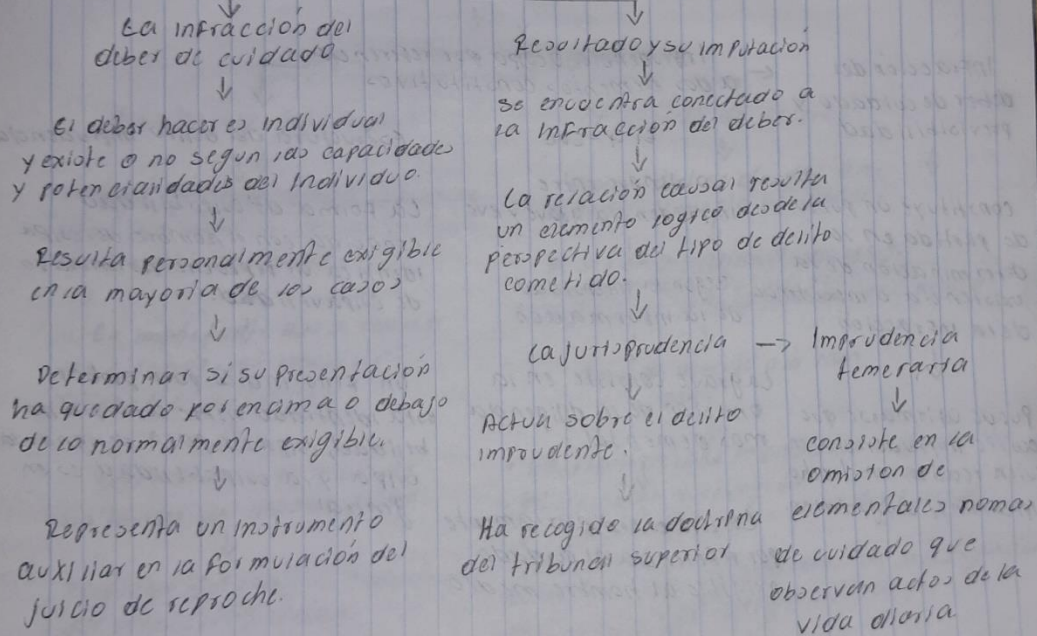 La infracción del
deber de cuidado
El deber hacer es individual
y existe o no segun las capacidades
y potencialidades del Individuo.
Resulta personalmente exigible
en la mayoria de los casos
Determinar si su presentación
ha quedado por encima o debajo
de lo normalmente exigible.
Representa un instrumento
auxiliar en la formulación del
juicio de reproche.
Resultado y su imputación
se encuentra conectado a
la Infracción del deber.
La relación causal resulta
un elemento logico desde la
perspectiva del tipo de delito
cometido.
La jurisprudencia → Imprudencia
temeraria
Actua sobre el delito
imprudente.
Ha recogido la doctrina
del tribunal superior
consiste en la
omision de
elementales nomas
de cuidado que
observan actos de la
vida diaria